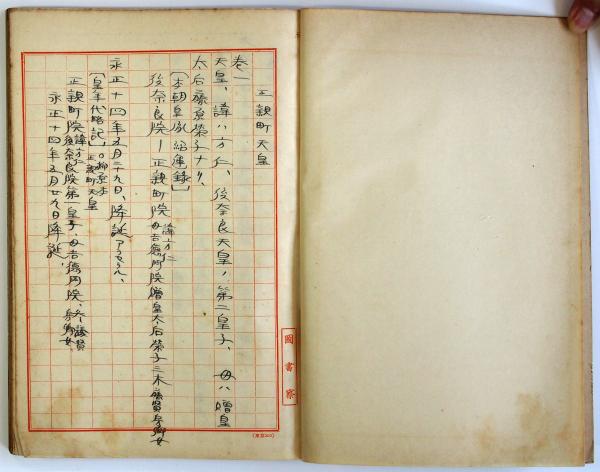 正親町天皇
巻一
天皇、諱ハ方仁、後奈良天皇ノ第二皇子、母ハ贈皇
太后藤原榮子ナリ、
〔本朝皇胤紹運録〕
後奈良院―正親町院 諱方仁 母吉徳門院贈皇太后榮子三木藤賢房卿女
永正十四年五月二十九日、降誕アラセラル、
〔皇年代略記〕 正親町天皇
正親町院 諱方仁 後奈良院第一皇子、母吉徳門院、
永正十四年五月廿九日降誕、
圖書寮